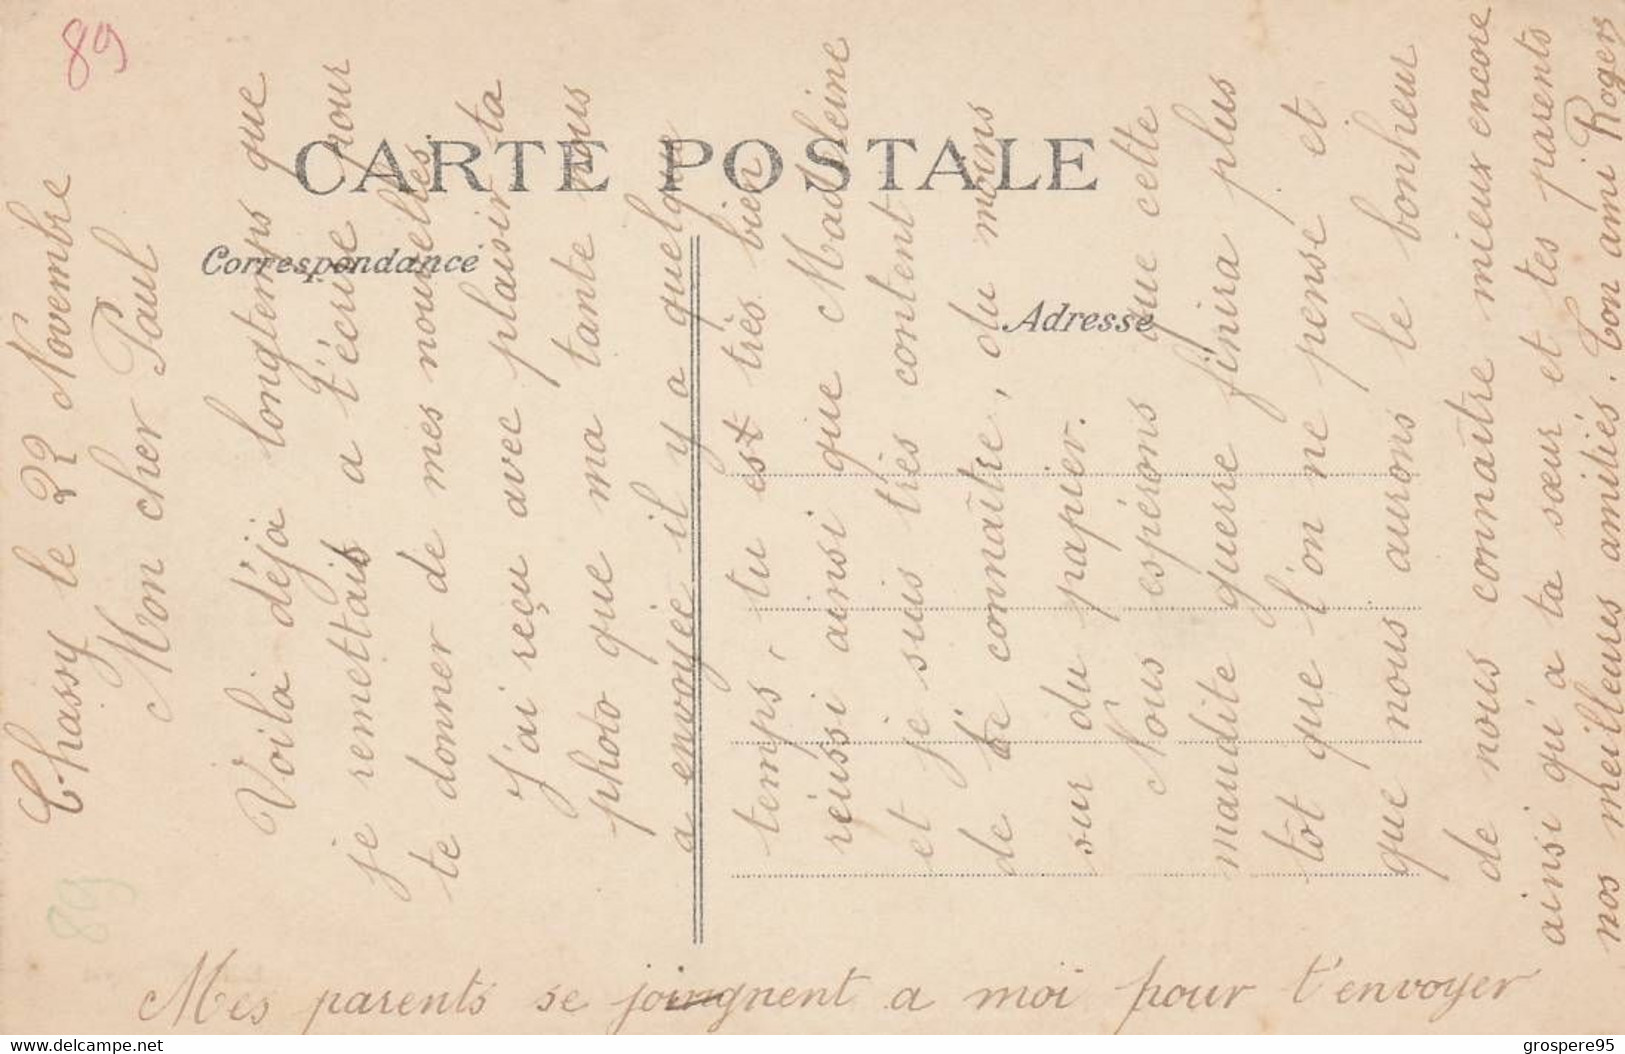 89
CARTE POSTALE
Correspondance
Adresse
Chassy le 22 Novembre
Mon cher Paul
Voilà déja longtemps que
je remettais a t'écrire pour
te donner de mes nouvelles.
J'ai reçu avec plaisir ta
photo que ma tante nous
a envoyée il y a quelque
temps, tu est très bien
réussi ainsi que Madleine
et je suis très content
de te connaître, du moins
sur du papier.
Nous espérons que cette
maudite guerre finira plus
tôt que l'on ne pense et
que nous aurons le bonheur
de nous connaître mieux encore
Mes parents se joingnent a moi pour t'envoyer
ainsi qu'a ta sœur et tes parents
nos meilleures amitiés. Ton ami Rogers
89
www.delcampe.net
grospere95